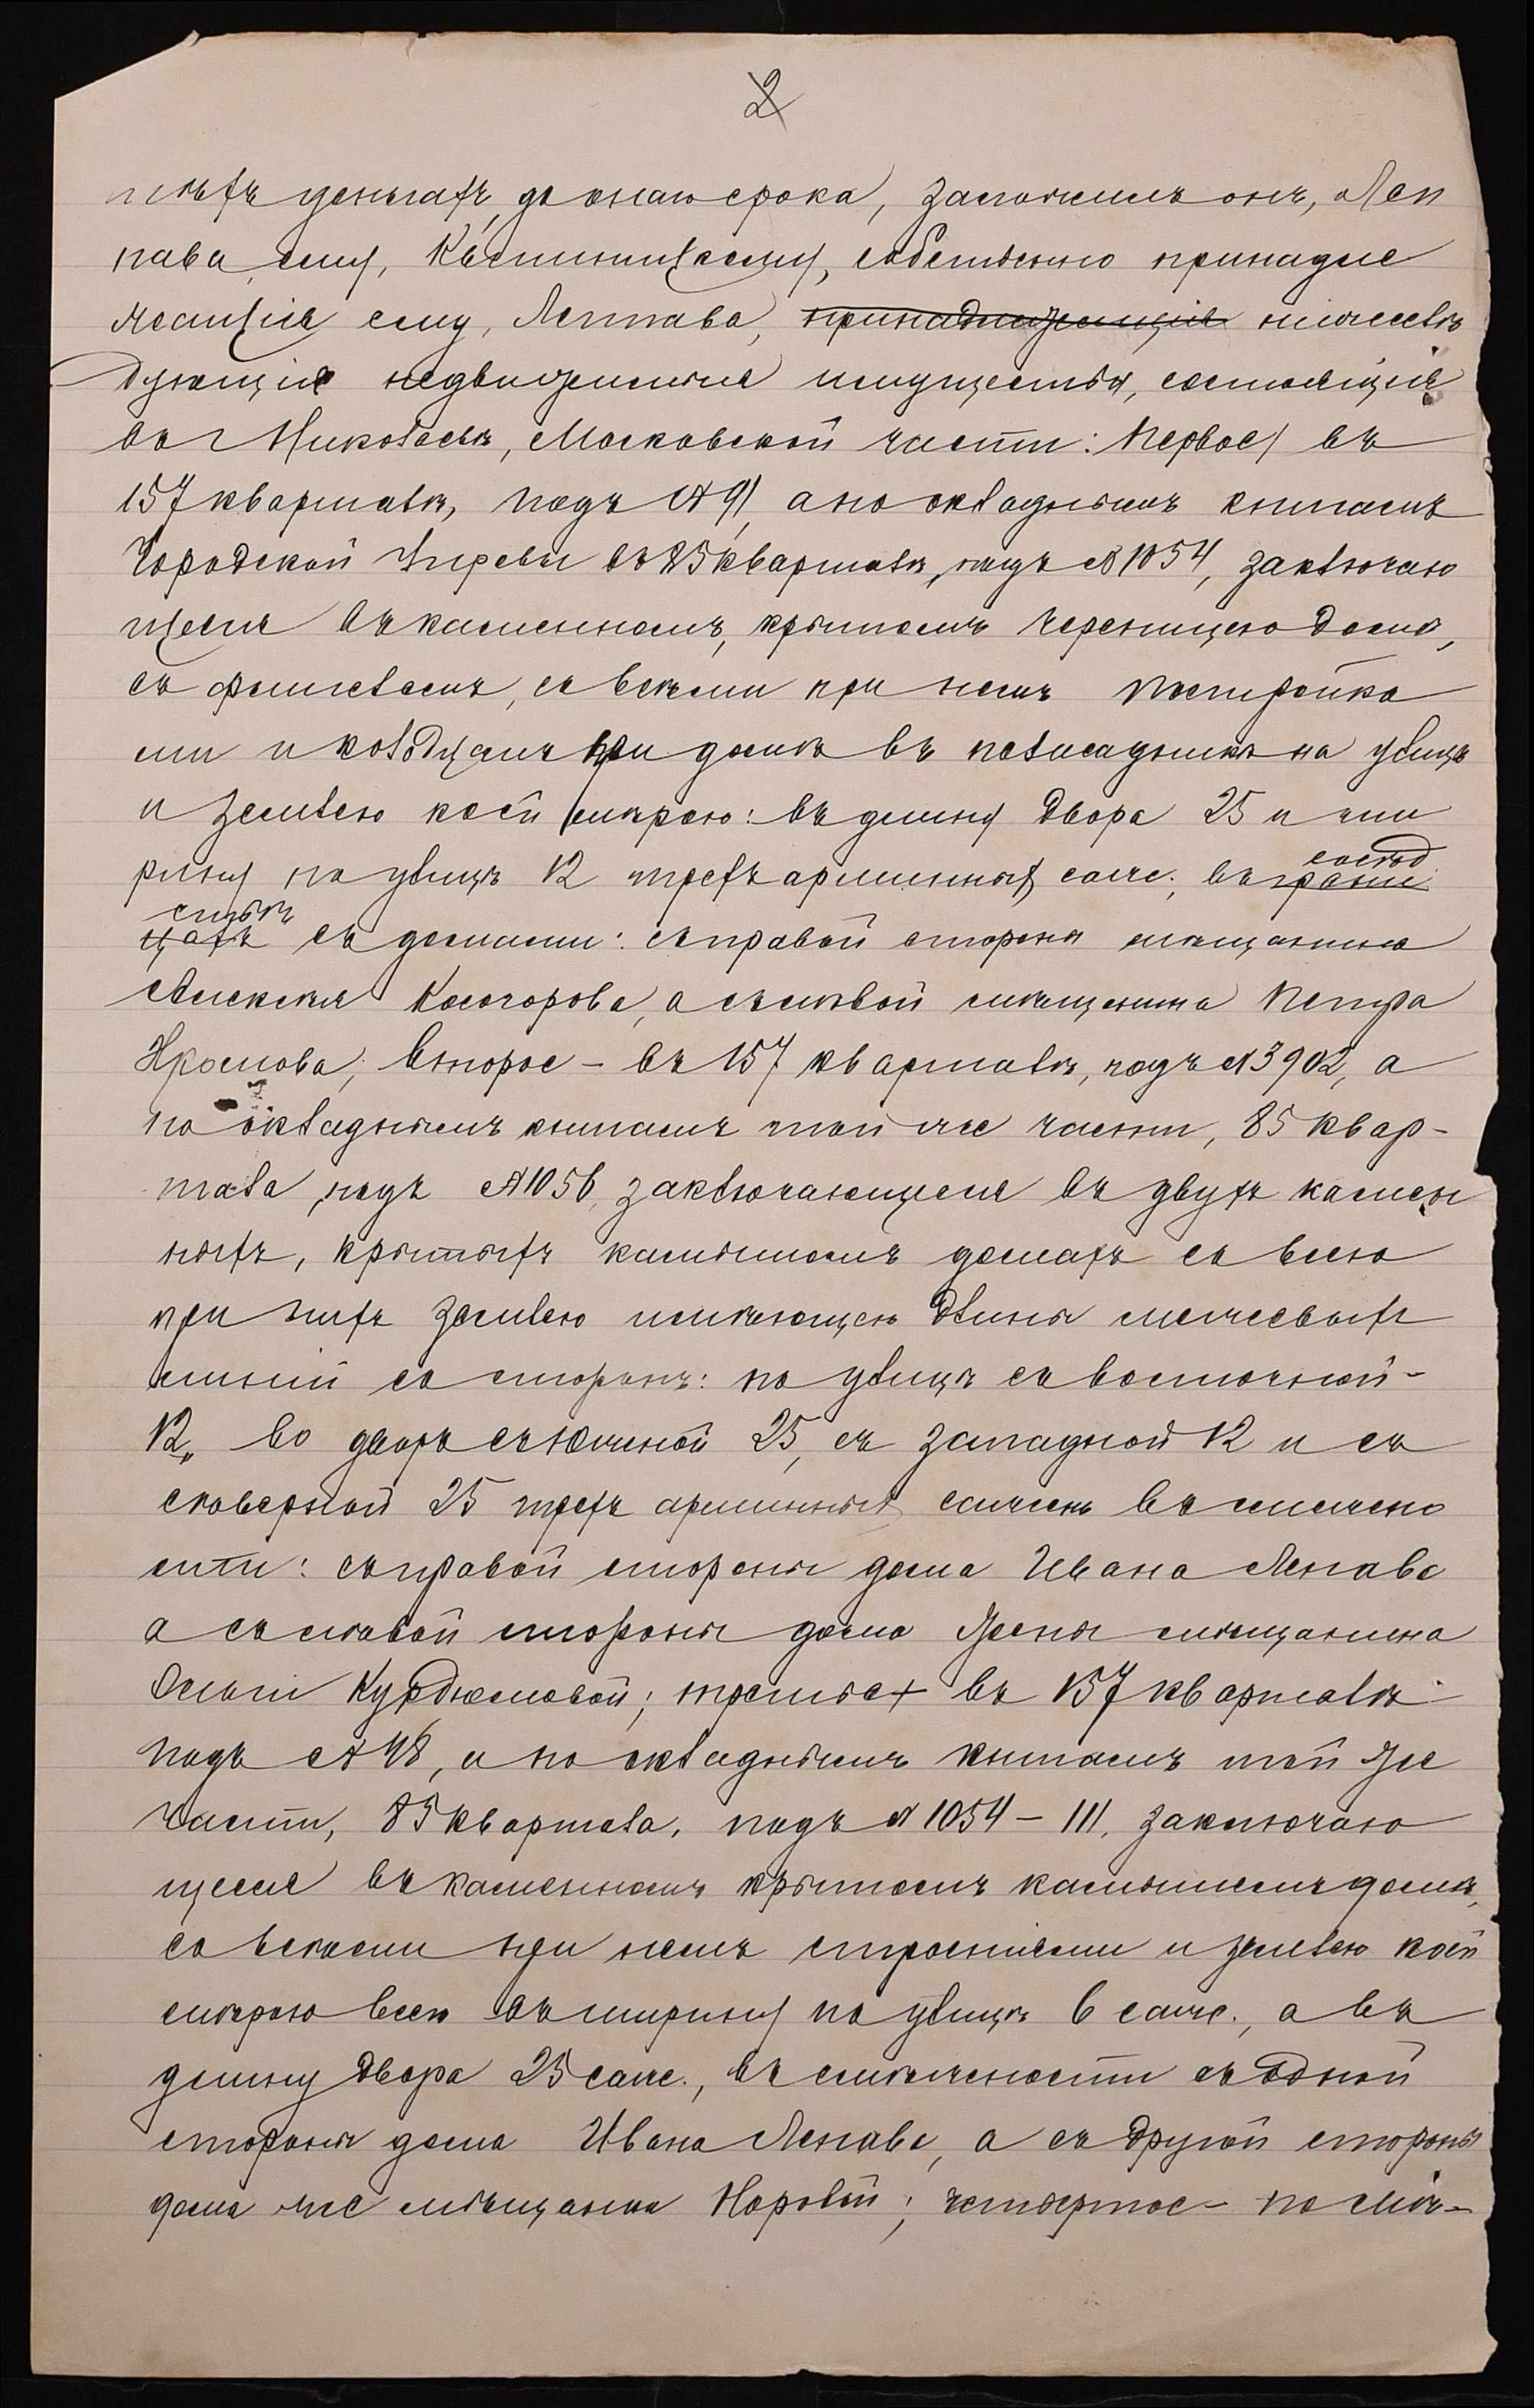 2
деньгахъ, до онаго срока, заложилъ онъ, Леп
пава, ему, собственно принадле
жащія ему, Леппава, принадлежащія нижеслѣ
дующія недвижимыя имущества, состоящія
въ г Николаевѣ, Московской части: Первое) въ
157 кварталѣ, подъ № 91, а по окладнымъ книгамъ
Городской Управы въ 85 кварталѣ, подъ № 1054, заключаю
щееся въ каменномъ, крытомъ черепицею домѣ,
съ флигелемъ, со всѣми при немъ постройка
ми и колодцемъ при домѣ въ полисадникѣ на улицѣ
и землею коей мѣрою: въ длину двора 25 и ши
рину по улицѣ 12 трехъ аршинныхъ саж., въ сосѣд
грани
ствѣ
цахъ съ домами: съ правой стороны мѣщанина
Алексѣя Косогорова, а съ лѣвой мѣщанина Петра
Второе – въ 157 кварталѣ, подъ № 3902, а
по окладнымъ книгамъ той же части, 85 квар-
тала, подъ № 1056, заключающееся въ двухъ камен
ныхъ, крытыхъ камышомъ домахъ со всею
при нихъ землею имѣющею длины межевыхъ
линій со сторонъ: по улицѣ съ восточной –
12, во дворѣ съ южной 25, съ западной 12 и съ
сѣверной 25 трехъ аршинныхъ сажень въ смежно
сти: съ правой стороны дома Ивана Лепава
а съ лѣвой стороны дома жены мѣщанина
третье + въ 157 кварталѣ
подъ № 48, а по окладнымъ книгамъ той же
части, 85 квартала, подъ № 1054 – 111, заключаю
щееся въ каменномъ крытомъ камышемъ домѣ,
со всѣми при немъ строеніями и землею коей
мѣрою всею въ ширину по улицѣ 6 саж., а въ
длину двора 25 саж., въ смѣжности съ одной
стороны дома Ивана Лепава, а съ другой стороны
дома же мѣщанки Норовой; четвертое – по смѣж–